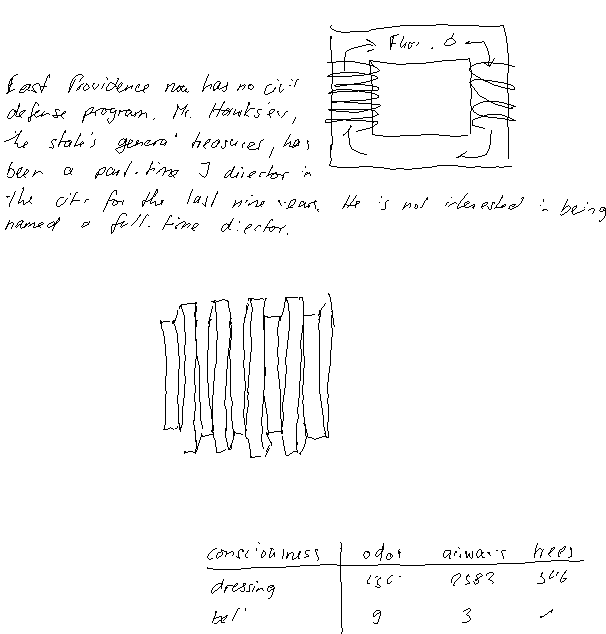 Flux . Φ
East Providence now has no civil
defense program. Mr. Hawksley,
the state's general treasurer, has
been a part-time J director in
the city for the last nine years. He is not interested in being
named a full-time director.
consciousness odor airways trees
dressing 2382 346
9 3